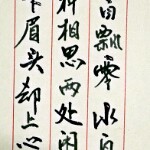 自飘零水自
种相思两处闲
下眉头却上心